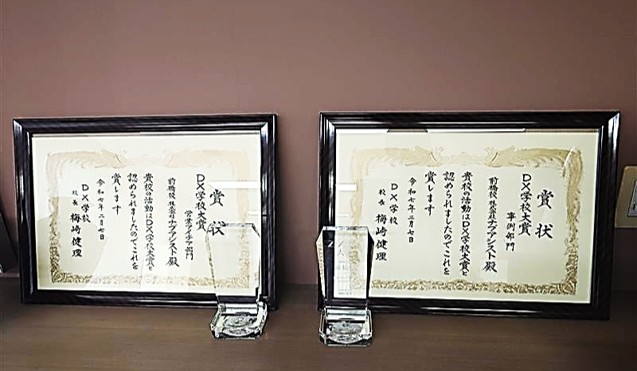 賞状
DX学校大賞
事例部門
前橋校 株式会社ナブアシスト殿
貴校の活動はDX学校大賞と
認められましたのでこれを
賞します
令和七年二月七日
DX学校
校長 梅崎健理
賞状
DX学校大賞
営業アイデア部門
前橋校 株式会社ナブアシスト殿
貴校の活動はDX学校大賞と
認められましたのでこれを
賞します
令和七年二月七日
DX学校
校長 梅崎健理